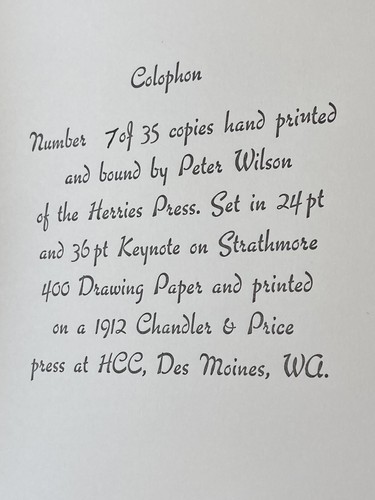 Colophon
Number 7 of 35 copies hand printed
and bound by Peter Wilson
of the Herries Press. Set in 24 pt
and 36 pt Keynote on Strathmore
400 Drawing Paper and printed
on a 1912 Chandler & Price
press at HCC, Des Moines, WA.